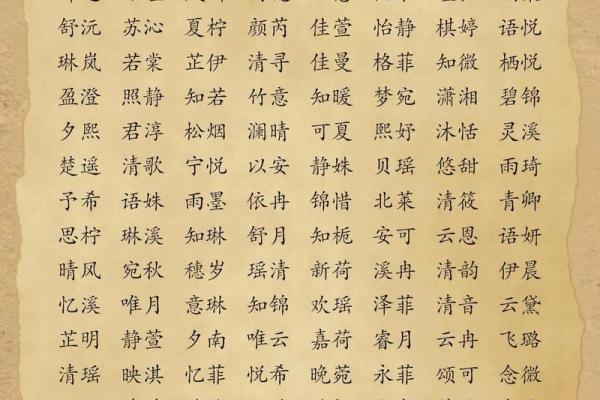 舒沅 苏沁 夏柠 颜芮 佳萱 怡静 棋婷 语悦
琳岚 若棠 芷伊 清寻 佳曼 格菲 知微 栖悦
盈澄 照静 知若 竹意 知暖 梦宛 潇湘 碧锦
夕熙 君淳 松烟 澜晴 可夏 熙妤 沐恬 灵溪
楚遥 清歌 宁悦 以安 静姝 贝瑶 悠甜 雨琦
予希 语姝 雨墨 依冉 锦惜 北莱 清筱 青卿
思柠 琳溪 知琳 舒月 知栀 安可 云恩 语妍
晴风 宛秋 穗岁 瑶清 新荷 溪冉 清韵 伊晨
忆溪 唯月 意琳 知锦 欢瑶 泽菲 清音 云黛
芷明 静萱 夕南 唯云 嘉荷 睿月 云冉 飞璐
清瑶 映淇 忆菲 悦希 晚菀 永菲 颂可 念微